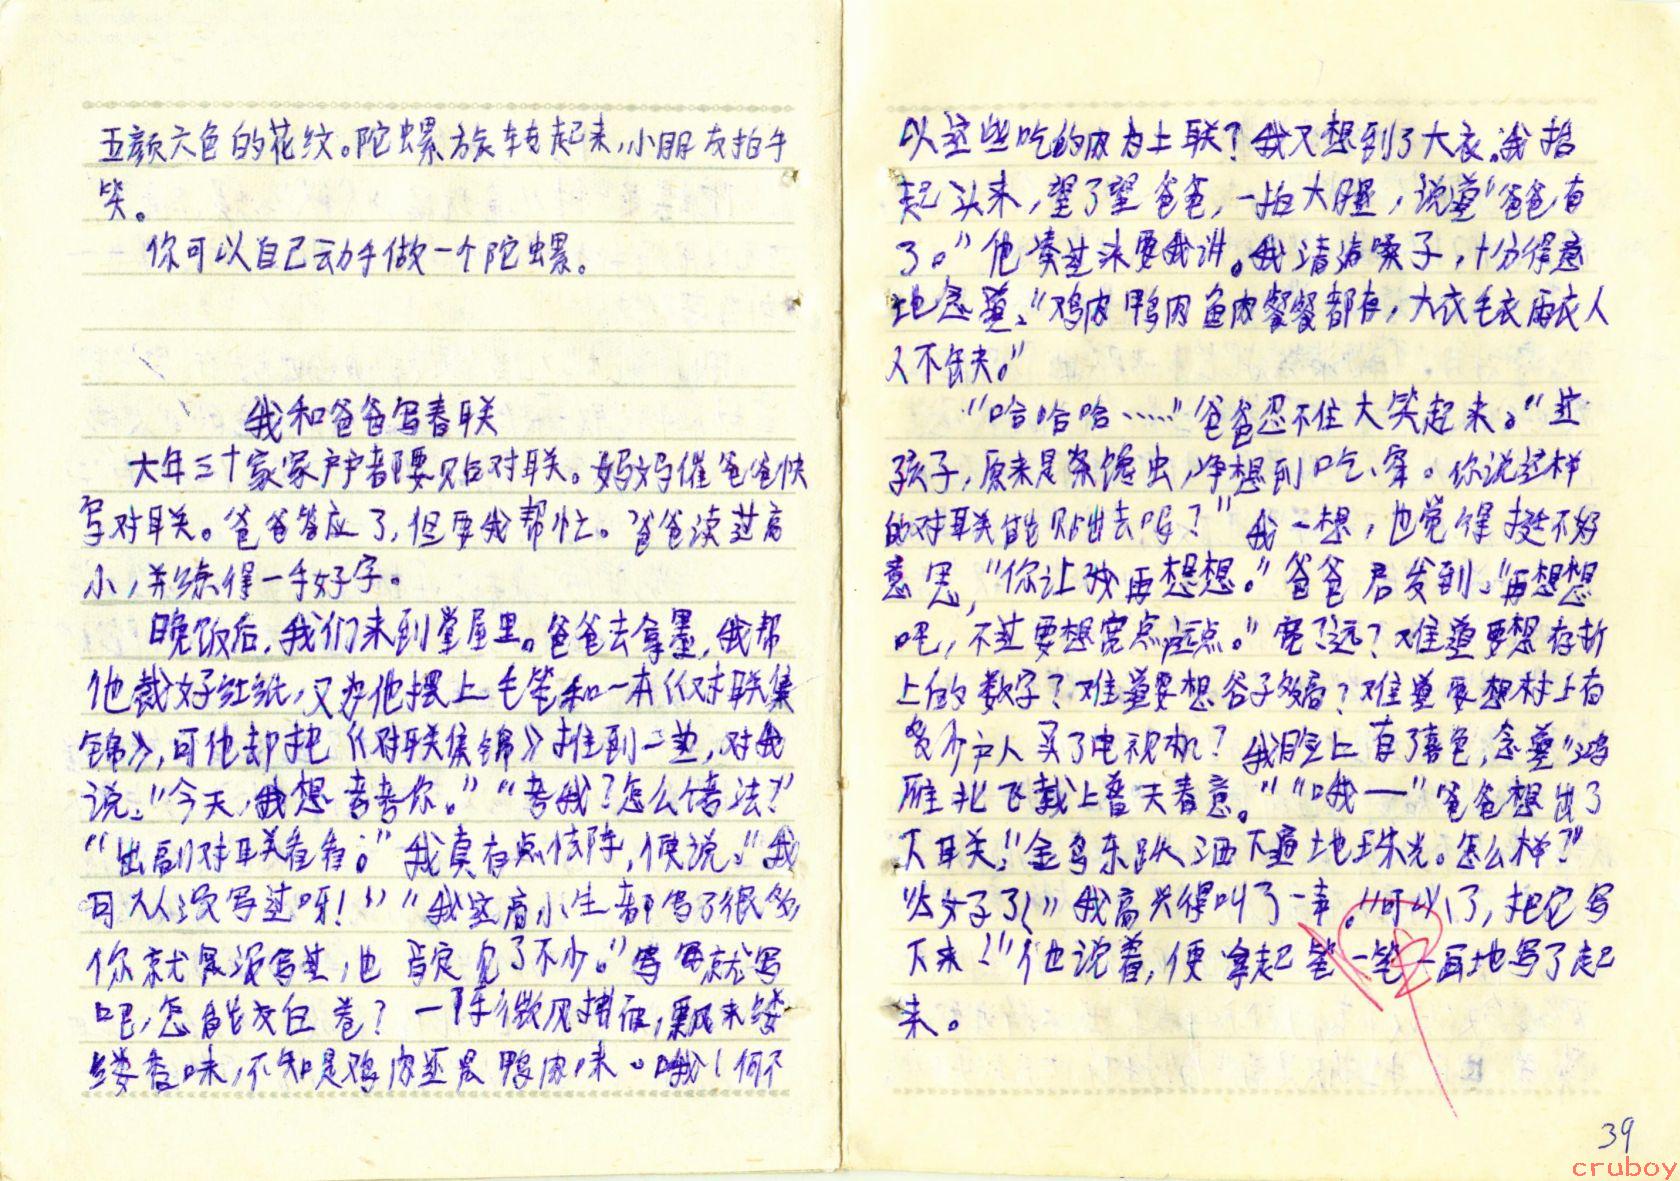 五颜六色的花纹。陀螺旋转起来,小朋友拍手
笑。
你可以自己动手做一个陀螺。
我和爸爸写春联
大年三十家家户户都要贴对联。妈妈催爸爸快
写对联。爸爸答应了,但要我帮忙。爸爸读过高
小,并练得一手好字。
晚饭后,我们来到堂屋里。爸爸去拿墨,我帮
他裁好红纸,又为他摆上毛笔和一本《对联集
锦》,可他却把《对联集锦》推到一边,对我
说:“今天,我想考考你。”“考我?怎么考法?”
“出副对联看看。”我真有点怯阵,便说:“我
可从没写过呀!”“我这高小生都写了很多,
你就是没写过,也肯定见了不少。”写就写
吧,怎能交白卷?一阵微风拂面,飘来缕
缕香味,不知是鸡肉还是鸭肉味。哦!何不
以这些吃的肉为上联?我又想到了大衣。我抬
起头来,望了望爸爸,一拍大腿,说道“爸爸,有
了。”他凑过来要我讲。我清清嗓子,十分得意
地念道:“鸡肉鸭肉鱼肉餐餐都有,大衣毛衣雨衣人
人不缺。”
“哈哈哈……”爸爸忍不住大笑起来。“这
孩子,原来是条馋虫,净想到吃、穿。你说这样
的对联能贴出去吗?”我一想,也觉得挺不好
意思,“你让我再想想。”爸爸启发到:“再想想
吧,不过要想宽点远点。”宽?远?难道要想存折
上的数字?难道要想谷子多高?难道要想村上有
多少户人买了电视机?我脸上有了喜色,念道“鸿
雁北飞载上普天春意。”“哦——”爸爸想出了
下联:“金乌东跃洒下遍地珠光。怎么样?”
“太好了!”我高兴得叫了一声。“可以了,把它写
下来!”他说着,便拿起笔一笔一画地写了起
来。
39
cruboy